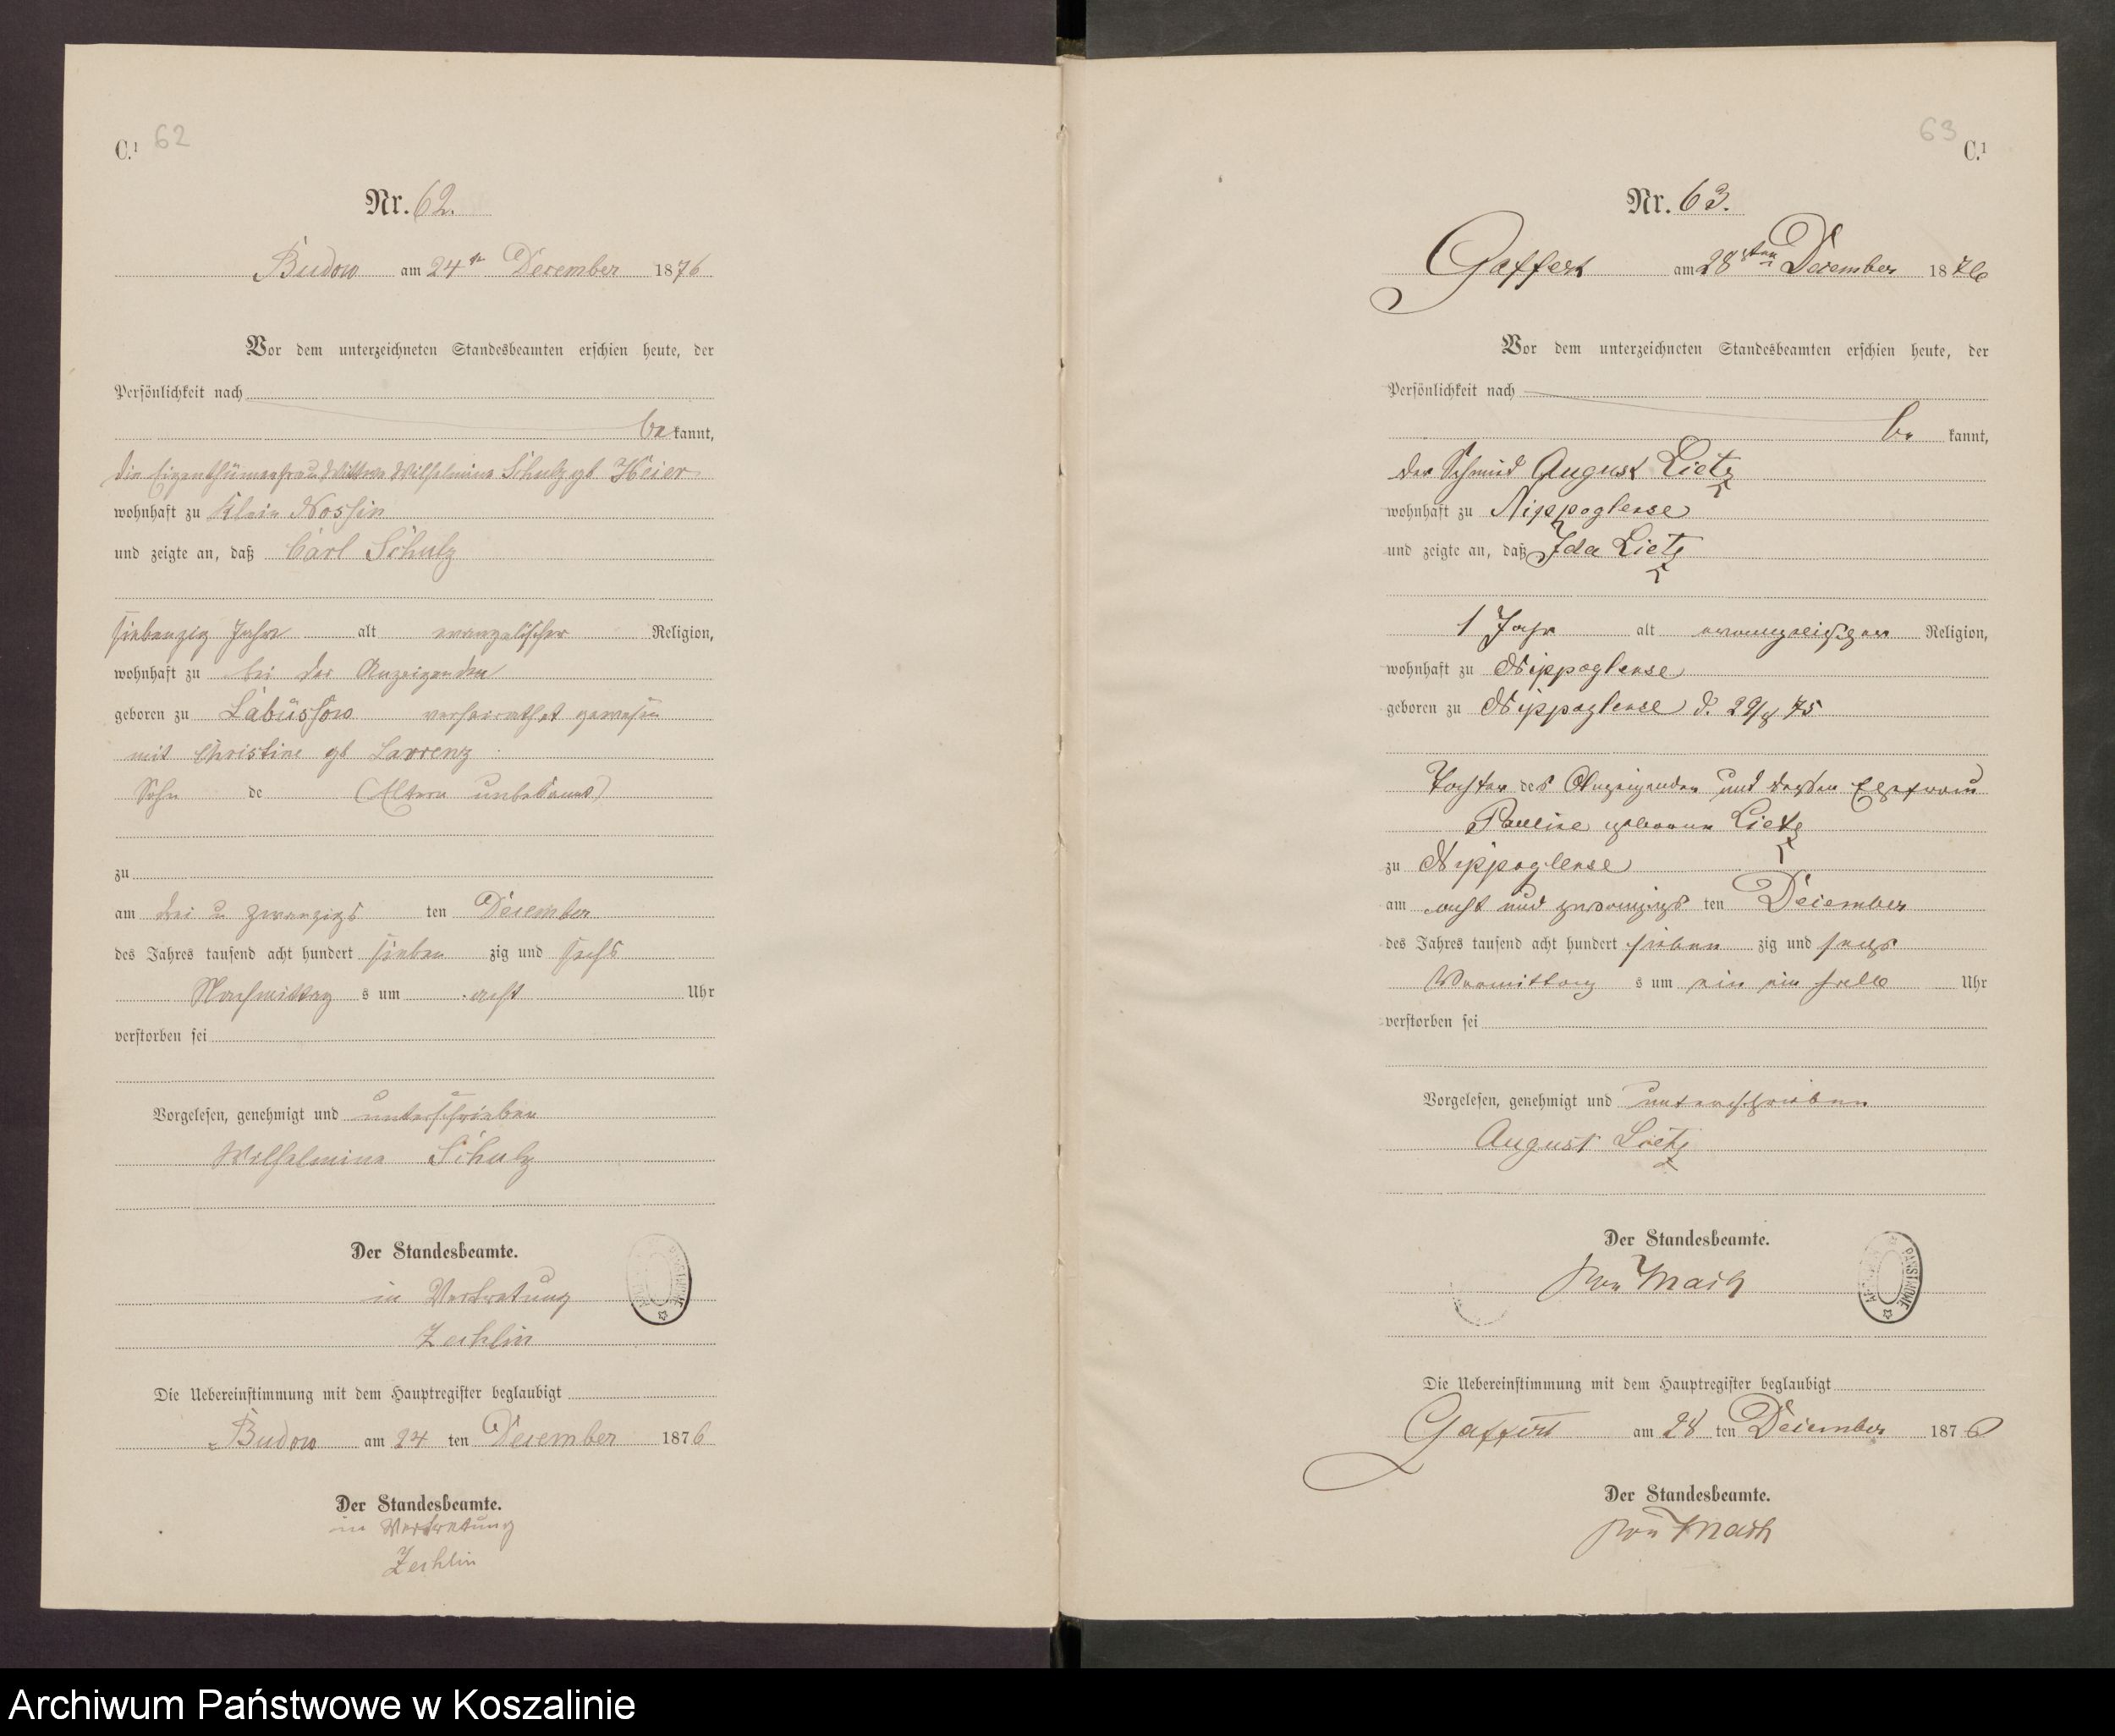 C.1 62
Nr. 62.
Budow am 24ten December 1876
Vor dem unterzeichneten Standesbeamten erschien heute, der
Persönlichkeit nach
be kannt,
die Eigenthümerfrau Wittwe Wilhelmine Schulz gb Heier
wohnhaft zu Klein Nossin
und zeigte an, daß Carl Schulz
siebenzig Jahre alt evangelischer Religion,
wohnhaft zu bei der Anzeigenden
geboren zu Labüssow verheirathet gewesen
mit Christine gb Lawrenz
Sohn de (Eltern unbekannt)
zu
am drei u zwanzigs ten December
des Jahres tausend acht hundert sieben zig und sechs
Nachmittag s um acht Uhr
verstorben sei
Vorgelesen, genehmigt und unterschrieben
Wilhelmine Schulz
Der Standesbeamte.
in Vertretung
Zechlin
Die Uebereinstimmung mit dem Hauptregister beglaubigt
Budow am 24 ten December 1876
Der Standesbeamte.
in Vertretung
Zechlin
63 C.1
Nr. 63.
Gaffert am 28sten December 1876
Vor dem unterzeichneten Standesbeamten erschien heute, der
Persönlichkeit nach
be kannt,
der Schmid August Lietz
wohnhaft zu Nippoglense
und zeigte an, daß Ida Lietz
1 Jahr alt evangelischen Religion,
wohnhaft zu Nippoglense
geboren zu Nippoglense d. 29/8 75
Tochter des Anzeigenden und dessen Ehefrau
Pauline geborene Lietz
zu Nippoglense
am acht und zwanzigs ten December
des Jahres tausend acht hundert sieben zig und sechs
Vormittag s um ein ein halb Uhr
verstorben sei
Vorgelesen, genehmigt und unterschrieben
August Lietz
Der Standesbeamte.
von Mach
PAŃSTWOWE
Die Uebereinstimmung mit dem Hauptregister beglaubigt
Gaffert am 28 ten December 1876
Der Standesbeamte.
von Mach
Archiwum Państwowe w Koszalinie